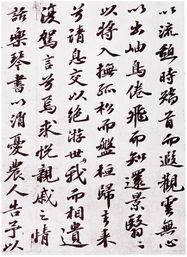 以流憩時矯首而遐觀雲無心
以出岫鳥倦飛而知還景翳翳
以將入撫孤松而盤桓歸去來
兮請息交以絕游世與我而相遺
復駕言兮焉求悅親戚之情
話樂琴書以消憂農人告予以